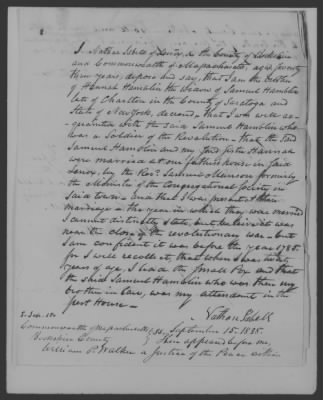 I Nathan Isbell of Lenox, in the County of Berkshire
and Commonwealth of Massachusetts, aged seventy
three years, depose and say, that I am the brother
of Hannah Hamblin the widow of Samuel Hamblin
late of Charlton in the County of Saratoga and
State of New York, deceased, that I was well ac-
quainted with the said Samuel Hamblin who
was a Soldier of the Revolution - that the said
Samuel Hamblin and my said sister Hannah
were married at our father's house in said
Lenox, by the Revd. Samuel Munson formerly
the Minister of the Congregational Society in
said town - and that I was present at their
marriage - the year in which they were married
I cannot distinctly state, but believe it was
near the close of the revolutionary war - but
I am confident it was before the year 1785.
for I well recollect, that when I was twenty
years of age, I had the Small Pox and that
the said Samuel Hamblin who was then my
brother in law, was my attendant in the
pest House -
Nathan Isbell
Commonwealth of Massachusetts } SS. September 15. 1835.
Berkshire County } Then appeared before me,
William P. Walker a Justice of the Peace within